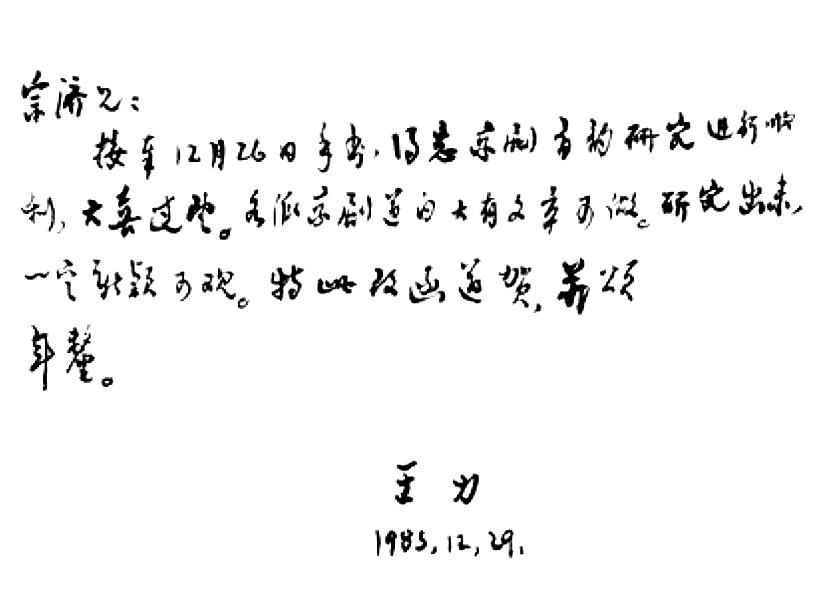 宗济兄：
接奉12月26日手书，得悉京剧音韵研究进行顺
利，大喜过望。我认京剧道白大有文章可做。研究出来，
一定新颖可观。特此致函道贺，并颂
年釐。
王力
1985.12.29.